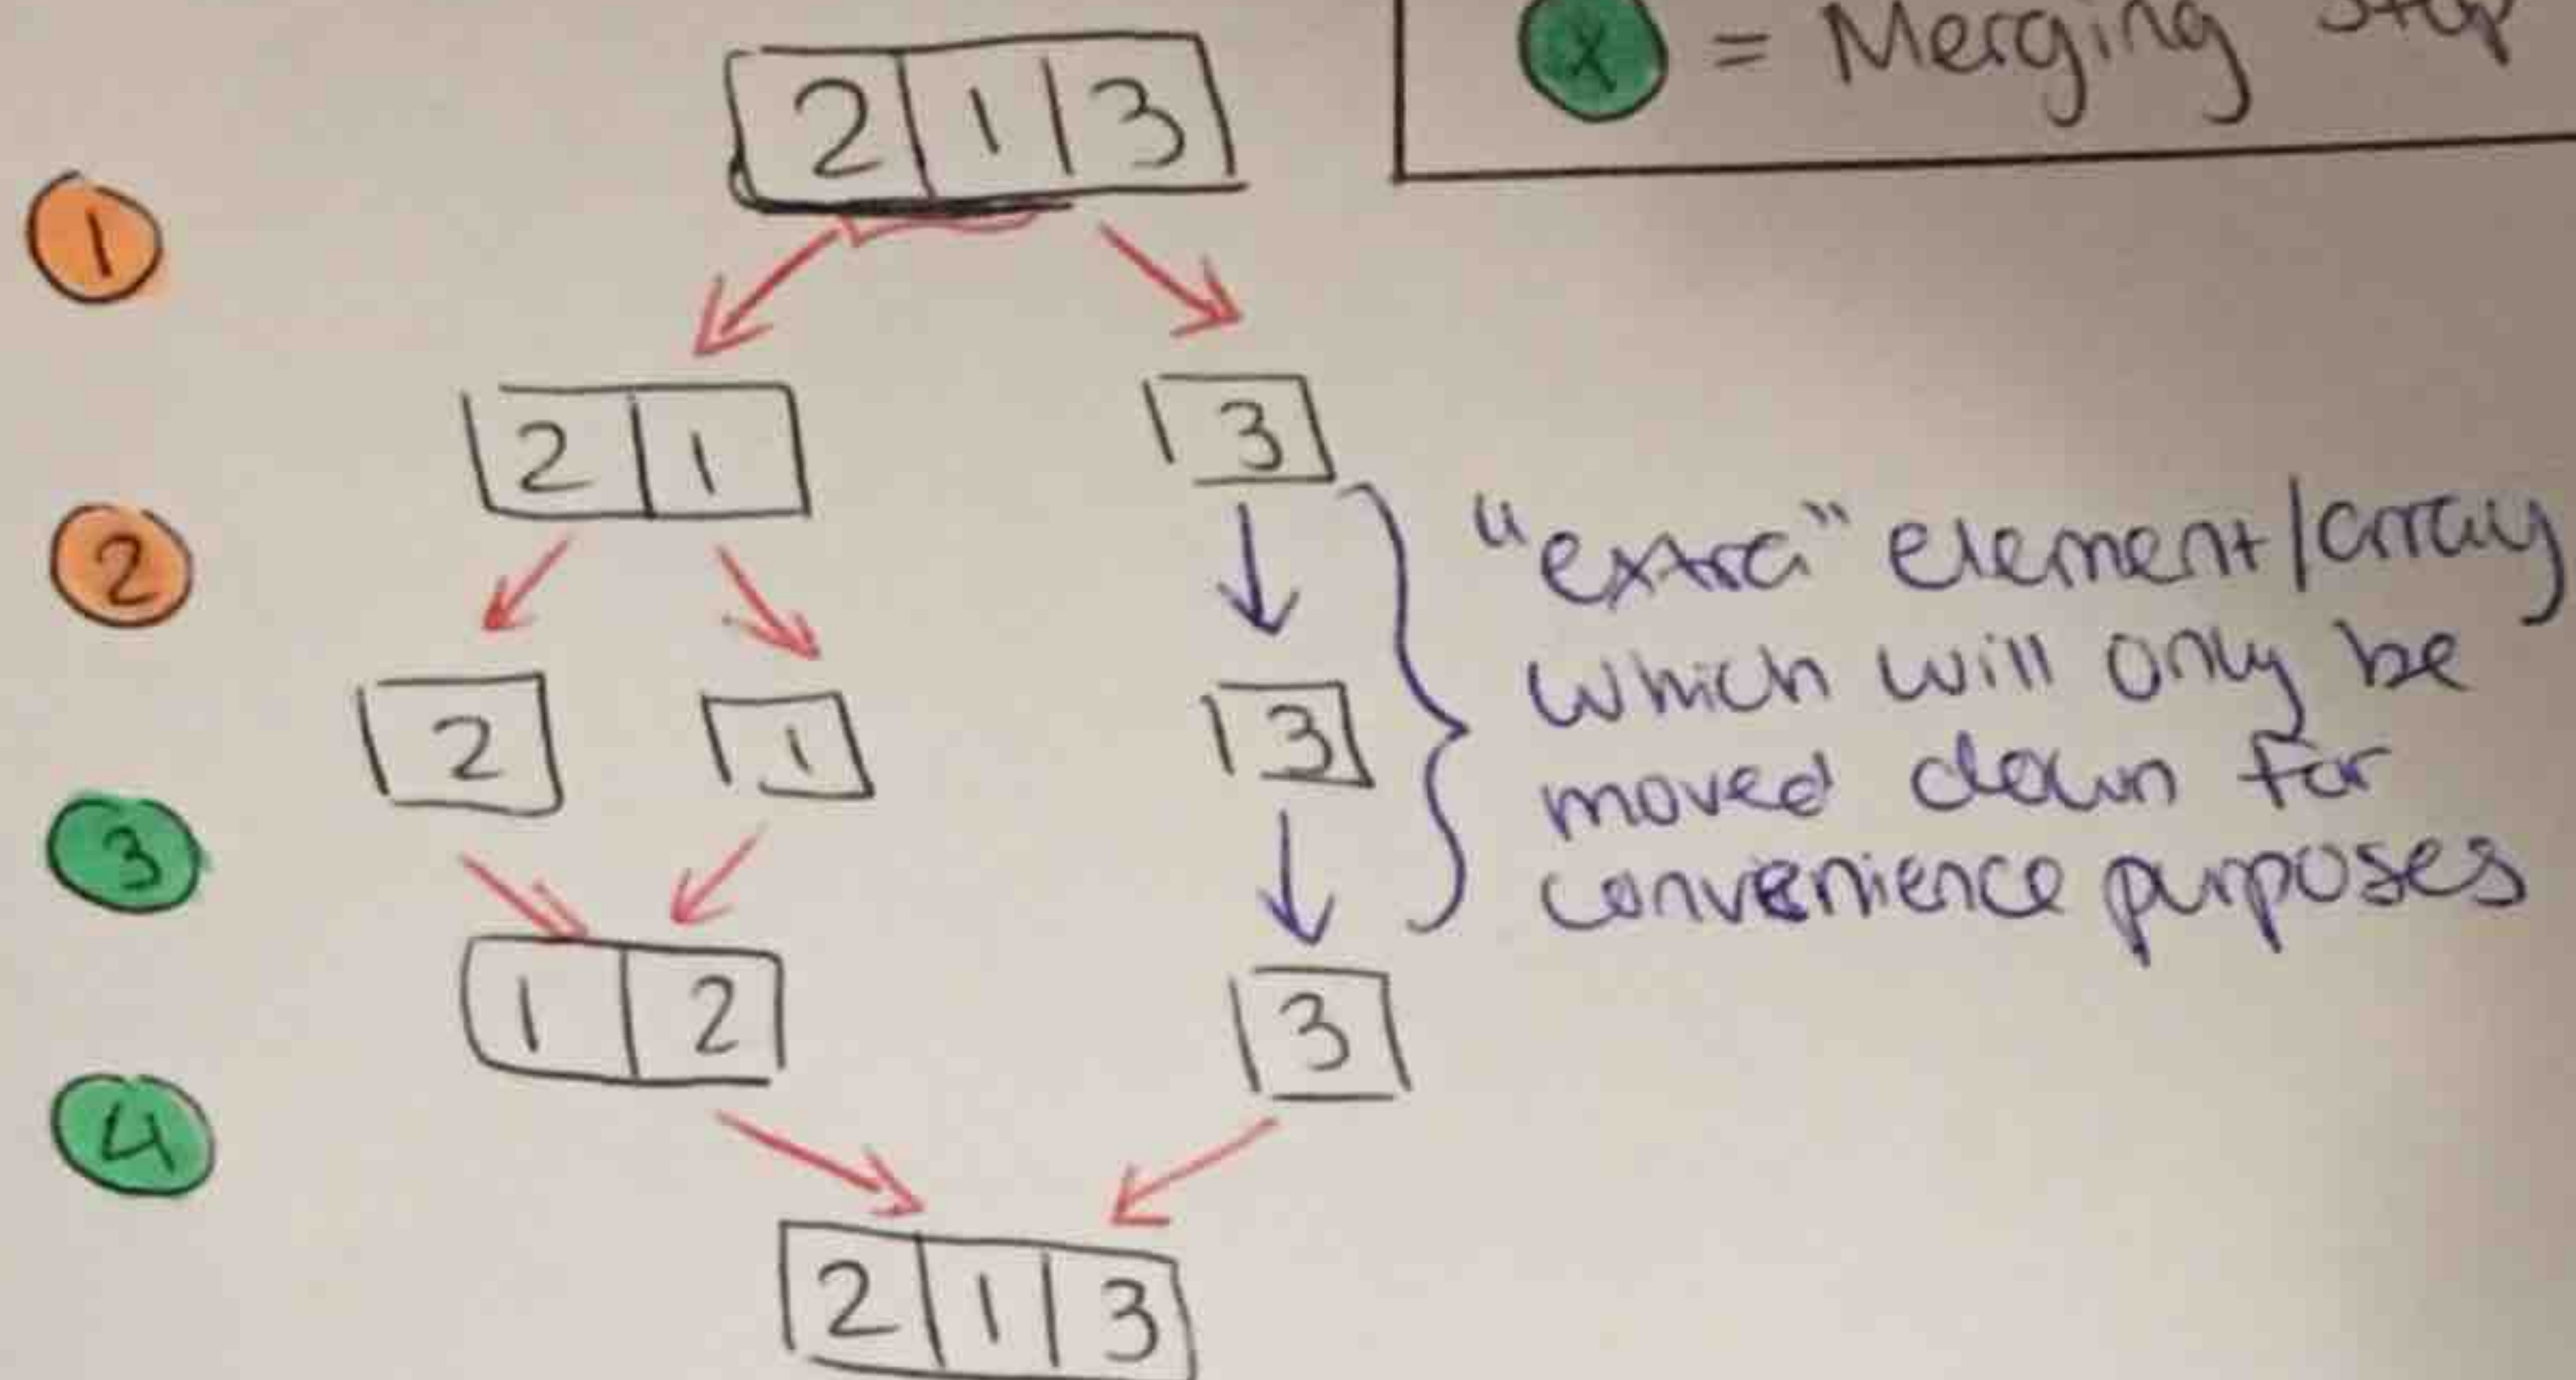 X = Merging Step
2 1 3
1
2 1
3
2
"extra" element/array
which will only be
moved down for
convenience purposes
2
1
3
3
1 2
3
4
2 1 3